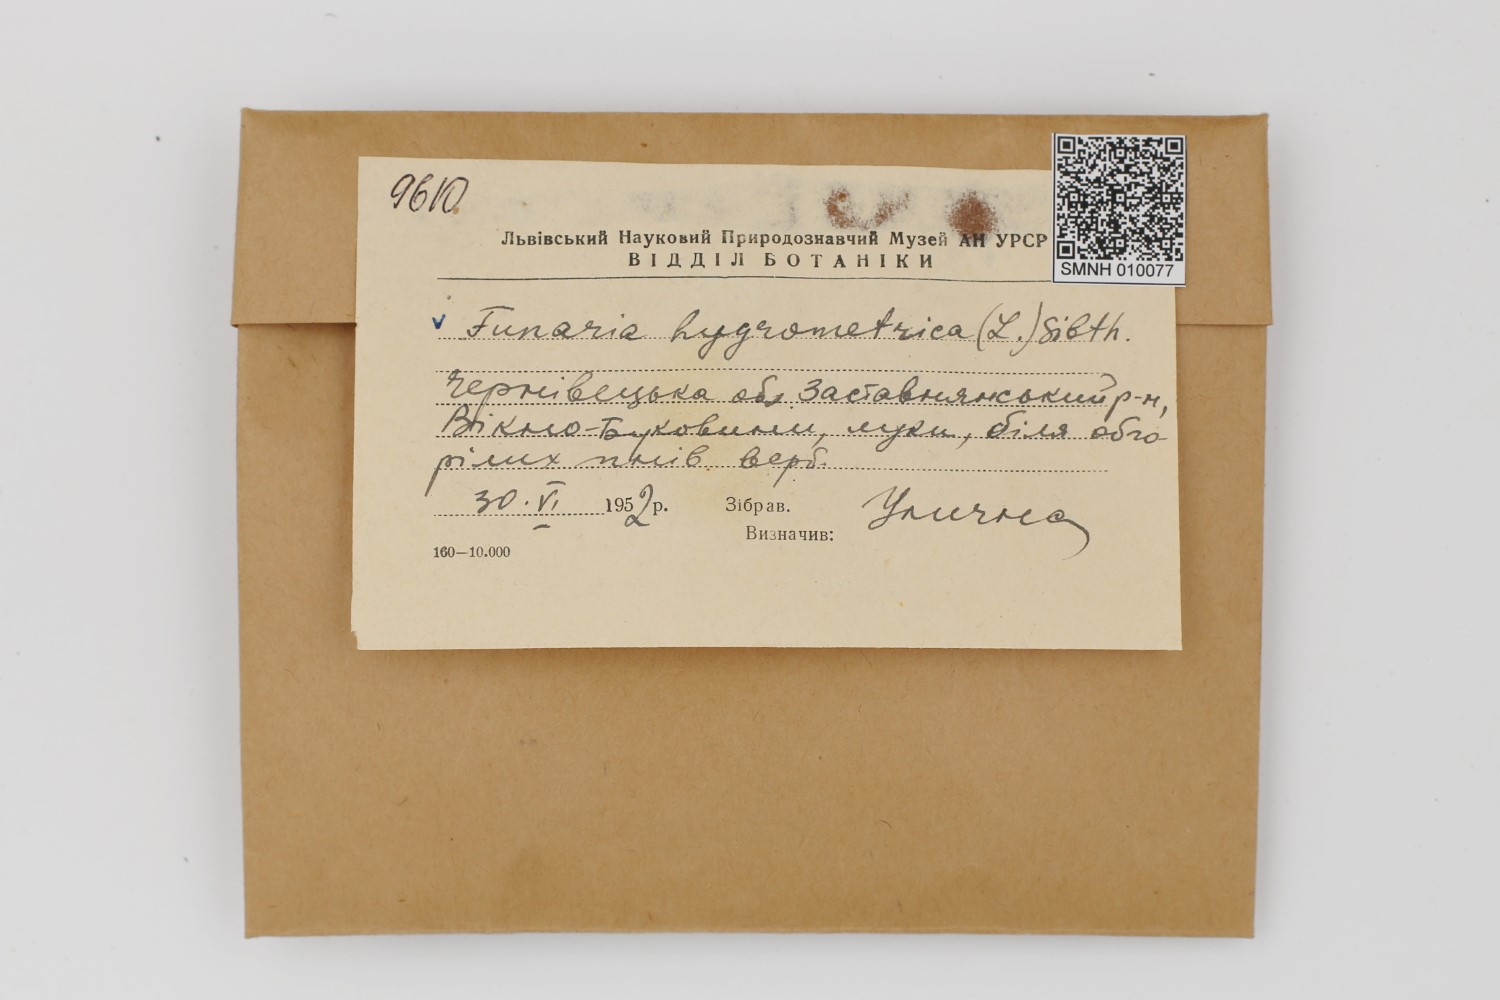 9610
Львівський Науковий Природознавчий Музей АН УРСР
ВІДДІЛ БОТАНІКИ
SMNH 010077
v Funaria hygrometrica (L.) Sibth.
Чернівецька обл. Заставнянський р-н,
Вікно-Буковини, луки, біля обго
рілих пнів верб.
30.VI 1952 р. Зібрав. Улична
Визначив:
160—10.000